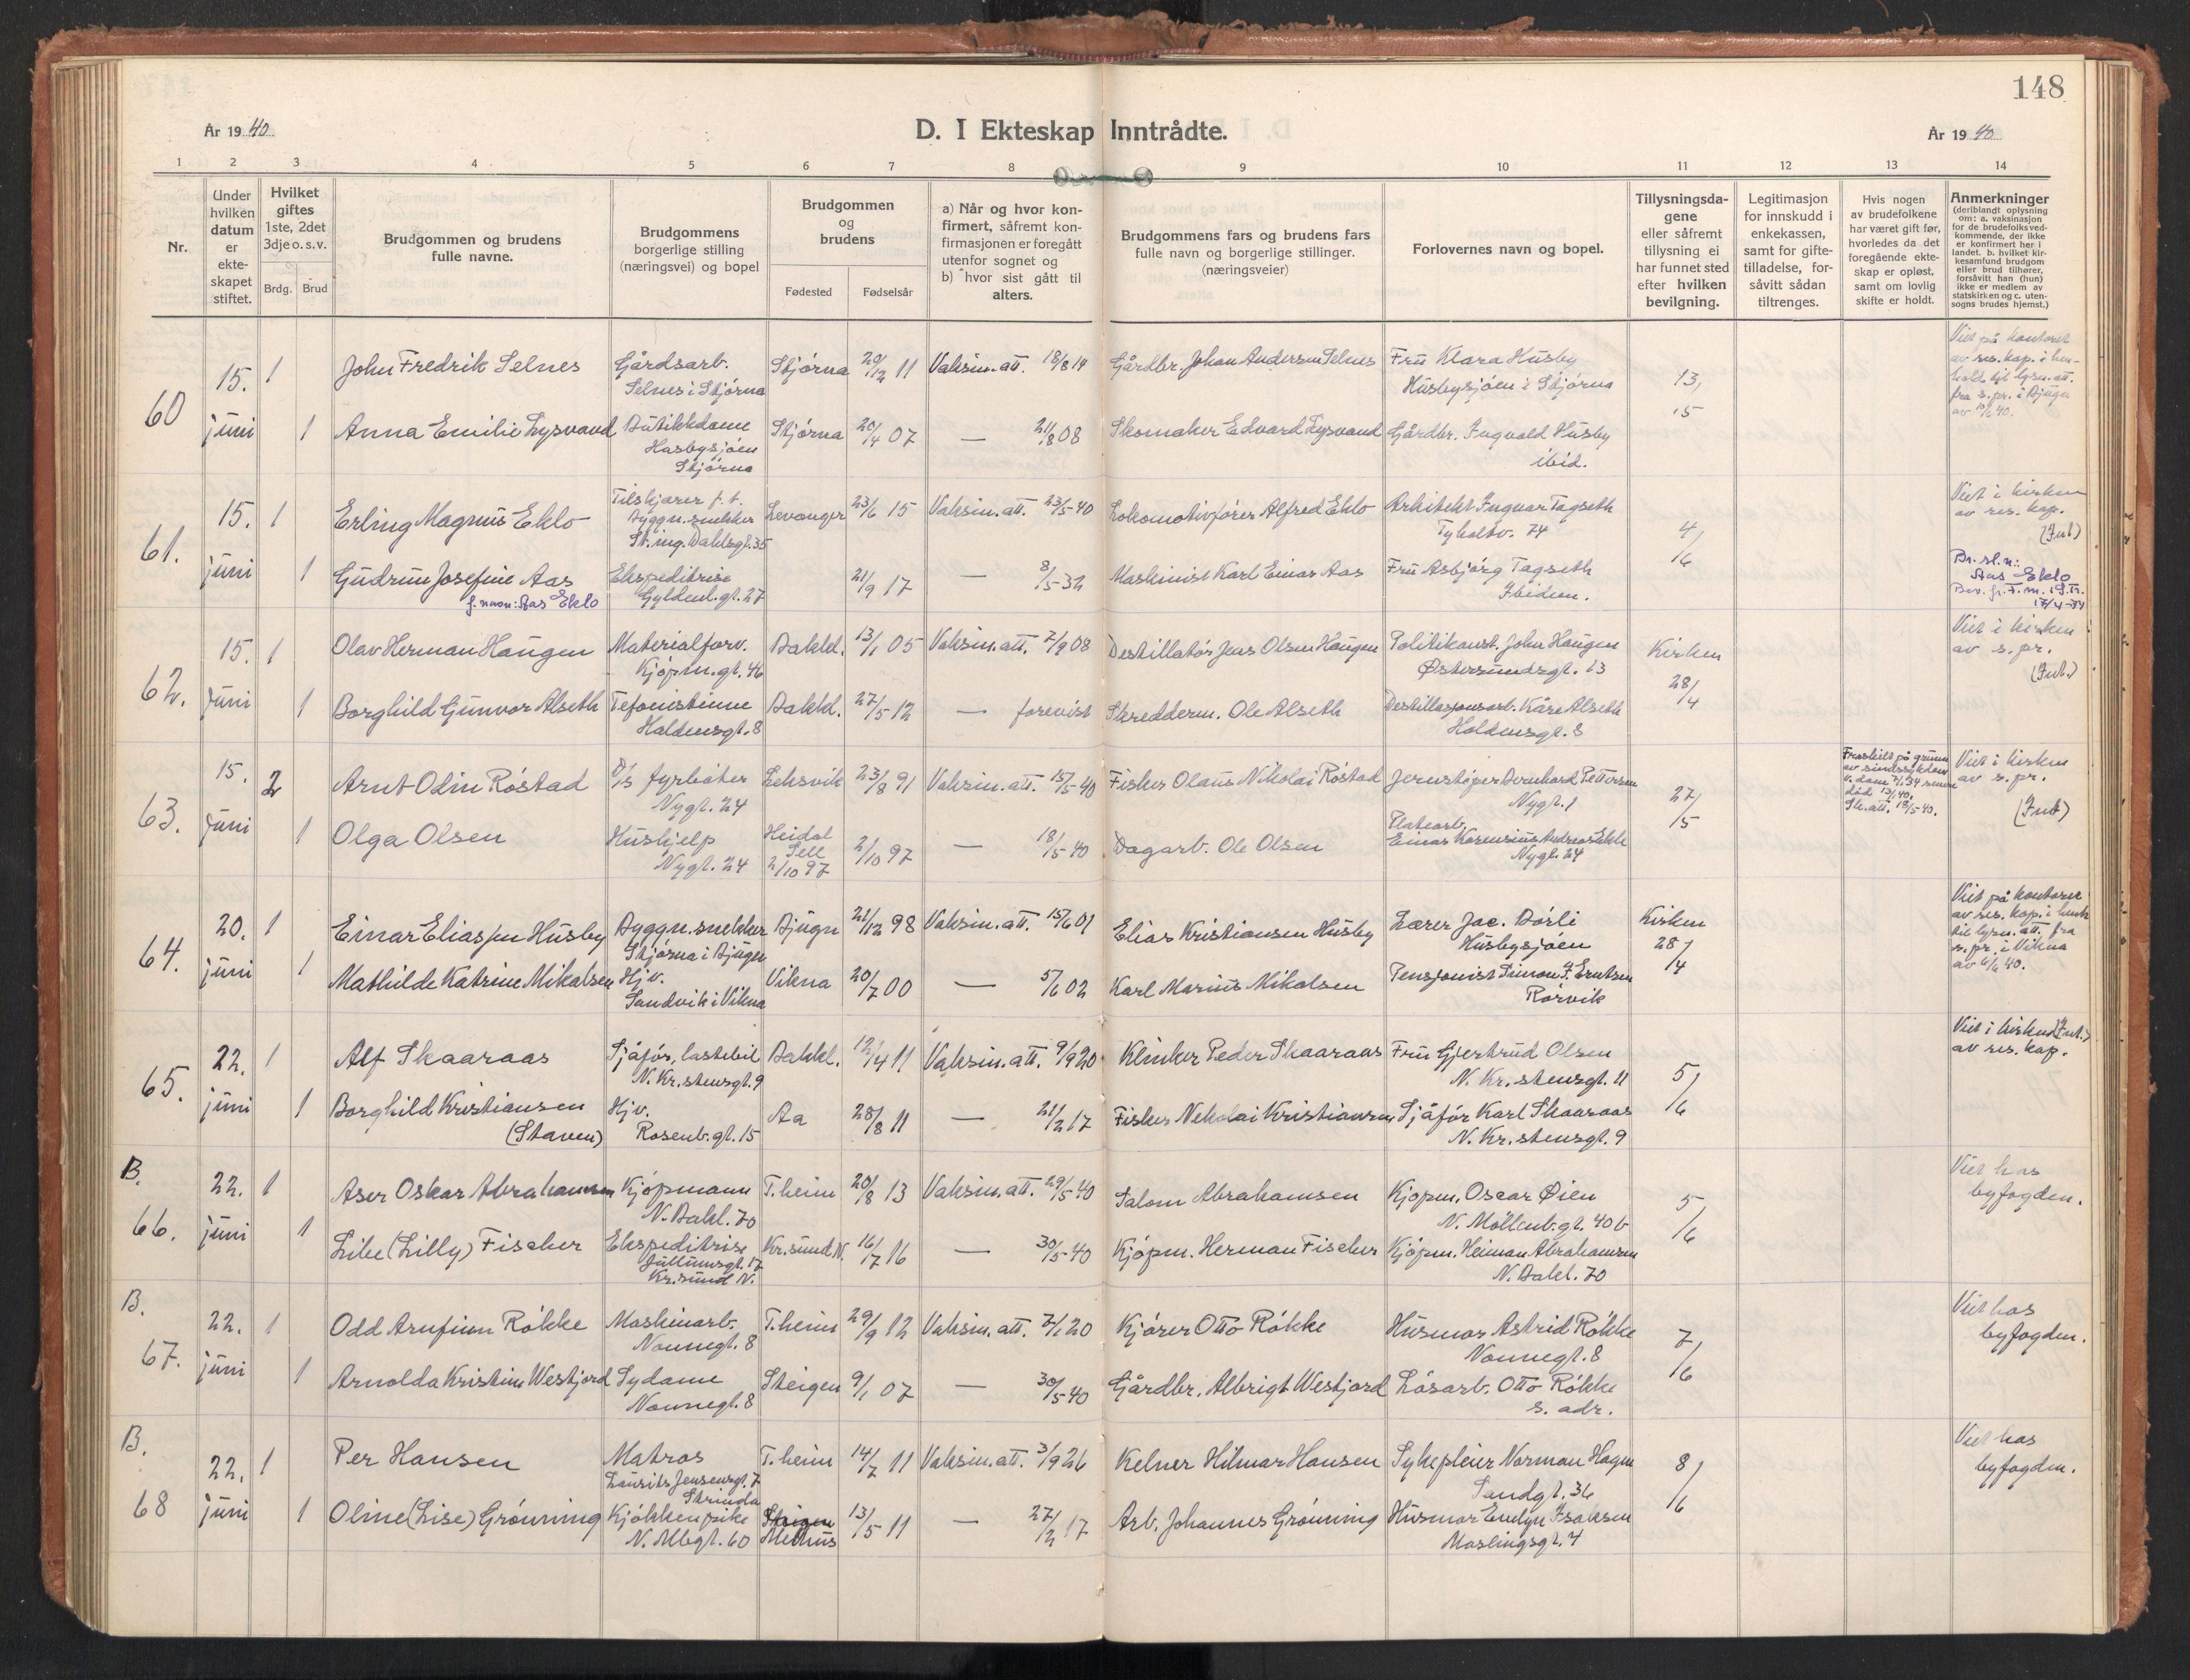 148
År 19 40
D. I Ekteskap Inntrådte.
År 19 40
1 2 3 4 5 6 7 8 9 10 11 12 13 14
Nr.
Under
hvilken
datum
er
ekte-
skapet
stiftet.
Hvilket
giftes
1ste, 2det
3dje o. s. v.
Brdg. Brud
Brudgommen og brudens
fulle navne.
Brudgommens
borgerlige stilling
(næringsvei) og bopel
Brudgommen
og
brudens
Fødested Fødselsår
a) Når og hvor kon-
firmert, såfremt kon-
firmasjonen er foregått
utenfor sognet og
b) hvor sist gått til
alters.
Brudgommens fars og brudens fars
fulle navn og borgerlige stillinger.
(næringsveier)
Forlovernes navn og bopel.
Tillysningsda-
gene
eller såfremt
tillysning ei
har funnet sted
efter hvilken
bevilgning.
Legitimasjon
for innskudd i
enkekassen,
samt for gifte-
tilladelse, for-
såvitt sådan
tiltrenges.
Hvis nogen
av brudefolkene
har været gift før,
hvorledes da det
foregående ekte-
skap er opløst,
samt om lovlig
skifte er holdt.
Anmerkninger
(deriblandt oplysning
om: a. vaksinasjon
for de brudefolks ved-
kommende, der ikke
er konfirmert her i
landet. b. hvilket kir-
kesamfund brudgom
eller brud tilhører,
forsåvitt han (hun)
ikke er medlem av
statskirken og c. uten-
sogns brudes hjemst.)
60
15.
juni
1
John Fredrik Selnes
Gårdsarb.
Selnes i Stjørna
Stjørna
20/12 11
Vaksin. att. 18/8 14
Gårdbr. Johan Andersen Selnes
Fru Klara Husby
Husbysjøen i Stjørna
13/
15
Viet på kontoret
av res. kap. i hen-
hold til lysn. att.
fra s. pr. i Bjugn
av 15/6 40.
1
Anna Emilie Lysvand
Butikkdame
Husbysjøen
Stjørna
Stjørna
20/4 07
— 21/8 08
Skomaker Edvard Lysvand
Gårdbr. Ingvald Husby
ibid.
61.
15.
juni
1
Erling Magnus Eklo
Tilskjærer f. t.
Byggn. snekker
St. ing. Dahlsgt. 35
Levanger
23/6 15
Vaksin. att. 23/5 40
Lokomotivfører Alfred Eklo
Arkitekt Ingvar Tagseth
Tyholtv. 74
4/
/6
Viet i kirken
av res. kap.
(Int)
1
Gudrun Josefine Aas
f. navn: Aas Eklo
Ekspeditrise
Gyldenl. gt. 27
21/9 17
— 8/5 32
Maskinist Karl Einar Aas
Fru Asbjørg Tagseth
Ibidem.
Br. sl. n:
Aas Eklo
62.
15.
juni
1
Olav Herman Haugen
Materialforv.
Kjøpm. gt. 46
Bakkl.
13/1 05
Vaksin. att. 7/9 08
Destillatør Jens Olsen Haugen
Politikonst. John Haugen
Østersundsgt. 13
Kirken
28/
/4
Viet i kirken
av s. pr.
(Int.)
1
Borghild Gunvor Alseth
Tefonistinne
Haldensgt. 8
Bakkl.
27/5 12
— forevist
Skredderm. Ole Alseth
Destillasjonsarb. Kåre Alseth
Haldensgt. 8
63.
15.
juni
2
Arnt Odin Røstad
D/s fyrbøter
Nygt. 24
Leksvik
23/8 91
Vaksin. att. 15/5 40
Fisker Olaus Nikolai Røstad
Jernstøper Bernhard Pettersen
Nygt. 1
27/
/5
Fraskilt på grunn
av sindssykdom
v. dom 7/1 34 senere
død 13/1 40.
Sk. att. 18/5 40.
Viet i kirken
av s. pr.
(Int)
1
Olga Olsen
Hushjelp
Nygt. 24
Heidal
Sell
2/10 97
2/10 97
— 18/5 40
Dagarb. Ole Olsen
Platearb.
Einar Kornerius Andreas Ekle
Nygt. 24
64.
20.
juni
1
Einar Eliassen Husby
Byggn. snekker
Stjørna i Bjugn
Bjugn
21/12 98
Vaksin. att. 15/6 01
Elias Kristiansen Husby
Lærer Jac. Dørli
Husbysjøen
Kirken
28/
/4
Viet på kontoret
av res. kap. i henh
til lysn. att. fra
s. pr. i Vikna
av 6/6 40.
1
Mathilde Katrine Mikalsen
Hjv.
Sandvik i Vikna
Vikna
20/7 00
— 5/6 02
Karl Marius Mikalsen
Pensjonist Simon F. Erntsen
Rørvik
65.
22.
juni
1
Alf Skaaraas
Sjåfør, lastebil
N. Kr. stensgt. 9
Bakkl.
12/4 11
Vaksin. att. 9/9 20
Klinker Peder Skaaraas
Fru Gjertrud Olsen
N. Kr. stensgt. 11
5/
/6
Viet i kirken (Int.)
av res. kap.
1
Borghild Kristiansen
(Staven)
Hjv.
Rosenb. gt. 15
Aa
28/8 11
— 21/2 17
Fisker Nekolai Kristiansen
Sjåfør Karl Skaaraas
N. Kr. stensgt. 9
B.
66.
22.
juni
1
Aser Oskar Abrahamsen
Kjøpmann
N. Bakl. 70
T.heim
20/8 13
Vaksin. att. 29/5 40
Salom Abrahamsen
Kjøpm. Oscar Øien
N. Møllenb. gt. 40 b
5/
/6
Viet hos
byfogden.
1
Libe (Lilly) Fischer
Ekspeditrise
Kr.sund N.
Kr.sund N.
16/17 16
— 30/5 40
Kjøpm. Herman Fischer
Kjøpm. Heiman Abrahamsen
N. Bakl. 70
B.
67.
22.
juni
1
Odd Arnfinn Røkke
Maskinarb.
Nonnegt. 8
T.heim
29/9 12
Vaksin. att. 7/1 20
Kjører Otto Røkke
Husmor Astrid Røkke
Nonnegt. 8
7/
/6
Viet hos
byfogden.
1
Arnolda Kristine Westjord
Sydame
Nonnegt. 8
Steigen
9/1 07
— 30/5 40
Gårdbr. Albrigt Westjord
Løsarb. Otto Røkke
s. adr.
B.
68
22.
juni
1
Per Hansen
Matros
Lauritz Jensensgt. 7
Strinda
T.heim
14/7 11
Vaksin. att. 3/9 26
Kelner Hilmar Hansen
Sykepleier Norman Hagen
Sandgt. 36
8/
/6
Viet hos
byfogden.
1
Oline (Lise) Grønning
Kjøkkenpike
N. Mlbgt. 60
Steigen
Melhus
13/5 11
— 27/2 17
Arb. Johannes Grønning
Husmor Evelyn Isaksen
Maslingsgt. 4